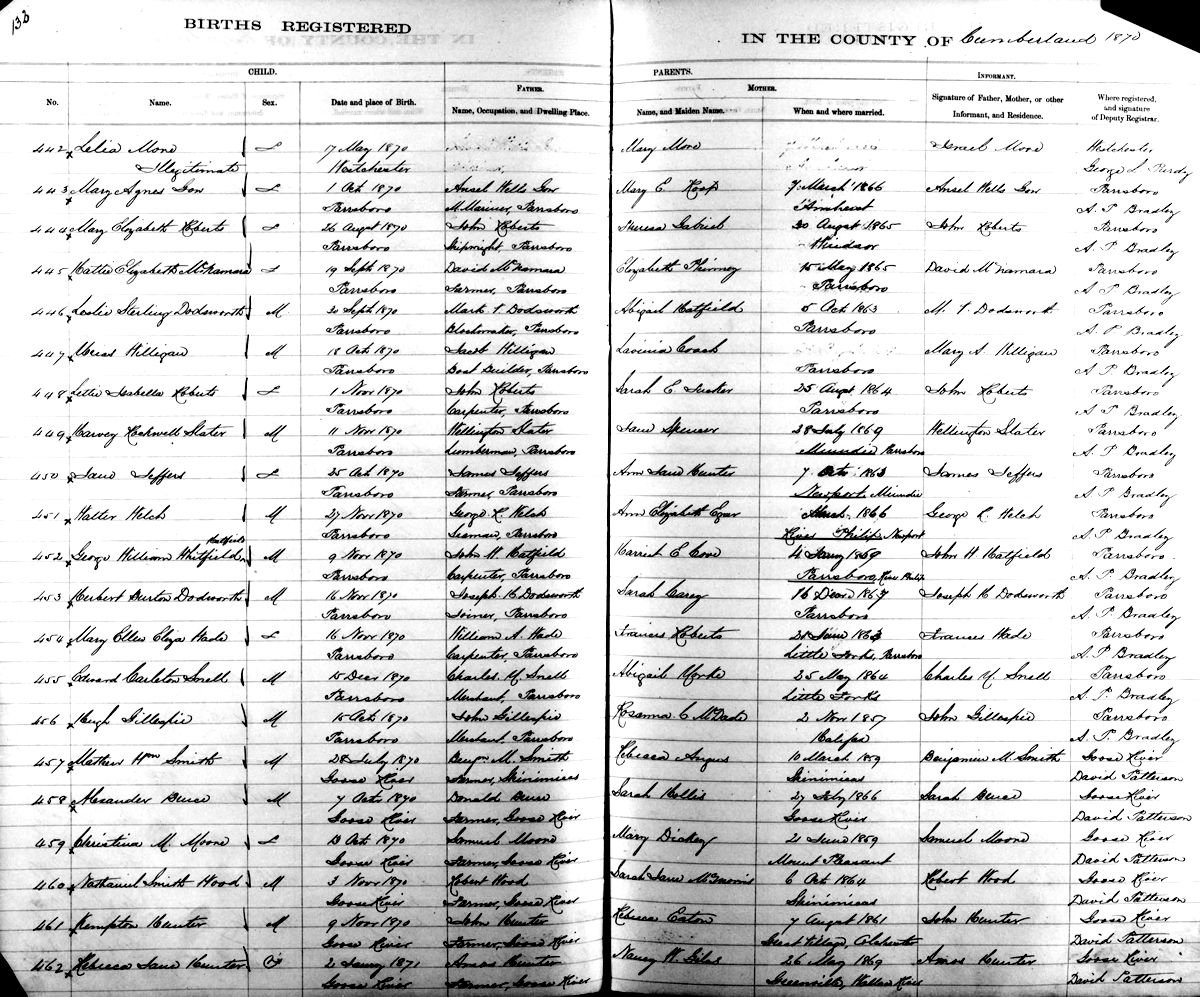 138
BIRTHS REGISTERED IN THE COUNTY OF Cumberland 1870
CHILD. PARENTS.
FATHER. MOTHER. INFORMANT.
No. Name. Sex. Date and place of Birth. Name, Occupation, and Dwelling Place. Name, and Maiden Name. When and where married. Signature of Father, Mother, or other Informant, and Residence. Where registered, and signature of Deputy Registrar.
442 Lelia More F 7 May 1870 Mary More Israel More Westchester
Illegitimate Westchester George S. Purdy
443 Mary Agnes Gow F 1 Oct 1870 Ansel Wells Gow Mary E. 7 March 1866 Ansel Wells Gow Parrsboro
Parrsboro M. Mariner, Parrsboro Amherst A. P Bradley
444 Mary Elizabeth Roberts F 26 Augst 1870 John Roberts Theresa Gabriel 20 Augst 1865 John Roberts Parrsboro
Parrsboro Shipwright, Parrsboro Windsor A. P Bradley
445 Hattie Elizabeth McNamara F 19 Sept 1870 David McNamara Elizabeth Phinney 15 May 1865 David McNamara Parrsboro
Parrsboro Farmer, Parrsboro Parrsboro A. P Bradley
446 Leslie Sterling Dodsworth M 20 Sept 1870 Mark T Dodsworth Abigail Hatfield 5 Oct 1863 M. T Dodsworth Parrsboro
Parrsboro Blockmaker, Parrsboro Parrsboro A. P Bradley
447 Willigan M 18 Oct 1870 Jacob Willigan Lavinia Mary A. Willigan Parrsboro
Parrsboro Boat Builder, Parrsboro Parrsboro A. P Bradley
448 Lettie Isabella Roberts F 1 Nov 1870 John Roberts Sarah E Tucker 25 Augst 1864 John Roberts Parrsboro
Parrsboro Carpenter, Parrsboro Parrsboro A. P Bradley
449 Harvey Rockwell Slater M 11 Nov 1870 Wellington Slater Jane Spenser 28 July 1869 Wellington Slater Parrsboro
Parrsboro Lumberman, Parrsboro Minudie Parrsboro A. P Bradley
450 Jane Jeffers F 25 Oct 1870 James Jeffers Ann Jane Hunter 7 Octr 1863 James Jeffers Parrsboro
Parrsboro Farmer Parrsboro Newport, Minudie A. P Bradley
451 Walter Welch M 27 Nov 1870 George R. Welch Ann Elizabeth 1866 George R. Welch Parrsboro
Parrsboro Seaman, Parrsboro River Philip, Newport A. P Bradley
Hatfield
452 George William Whitfield M 9 Nov 1870 John H. Hatfield Harriet E Cove 4 Jany 1869 John H Hatfield Parrsboro
Parrsboro Carpenter, Parrsboro Parrsboro, River Philip A. P. Bradley
453 Herbert Burton Dodsworth M 16 Nov 1870 Joseph H Dodsworth Sarah Carey 16 Decr 1867 Joseph H Dodsworth Parrsboro
Parrsboro Joiner, Parrsboro Parrsboro A. P Bradley
454 Mary Ellen Eliza Wade F 16 Nov 1870 William A. Wade Frances Roberts June 1863 Frances Wade Parrsboro
Parrsboro Carpenter, Parrsboro Little Forks, Parrsboro A. P Bradley
455 Edward Carleton Snell M 15 Decr 1870 Charles Y. Snell Abigail Yorke 25 May 1864 Charles Y. Snell Parrsboro
Parrsboro Merchant, Parrsboro Little Forks A. P. Bradley
456 Hugh Gillespie M 15 Oct 1870 John Gillespie Rosanna C McDade 2 Nov 1857 John Gillespie Parrsboro
Parrsboro Merchant, Parrsboro Halifax A. P. Bradley
457 Mathew Wm Smith M 28 July 1870 Benjn M. Smith Rebecca Angus 10 March 1859 Benjamin M. Smith Goose River
Goose River Farmer, Skinimicas Skinimicas David Patterson
458 Alexander Bruce M 7 Octr 1870 Donald Bruce Sarah Hollis 27 Feby 1866 Sarah Bruce Goose River
Goose River Farmer, Goose River Goose River David Patterson
459 Christina M. Moore F 13 Oct 1870 Samuel Moore Mary Dickey 21 June 1859 Samuel Moore Goose River
Goose River Farmer, Goose River Mount Pleasant David Patterson
460 Nathaniel Smith Wood M 3 Novr 1870 Robert Wood Sarah Jane McMorris 6 Oct 1864 Robert Wood Goose River
Goose River Farmer, Goose River Skinimicas David Patterson
461 Kempton Hunter M 9 Nov 1870 John Hunter Rebecca Eaton 7 Augst 1861 John Hunter Goose River
Goose River Farmer, Goose River Great Village, Colchester David Patterson
462 Rebecca Jane Hunter F 2 Jany 1871 Amos Hunter Nancy W. Giles 26 May 1869 Amos Hunter Goose River
Goose River Farmer, Goose River Greenville, Wallace River David Patterson